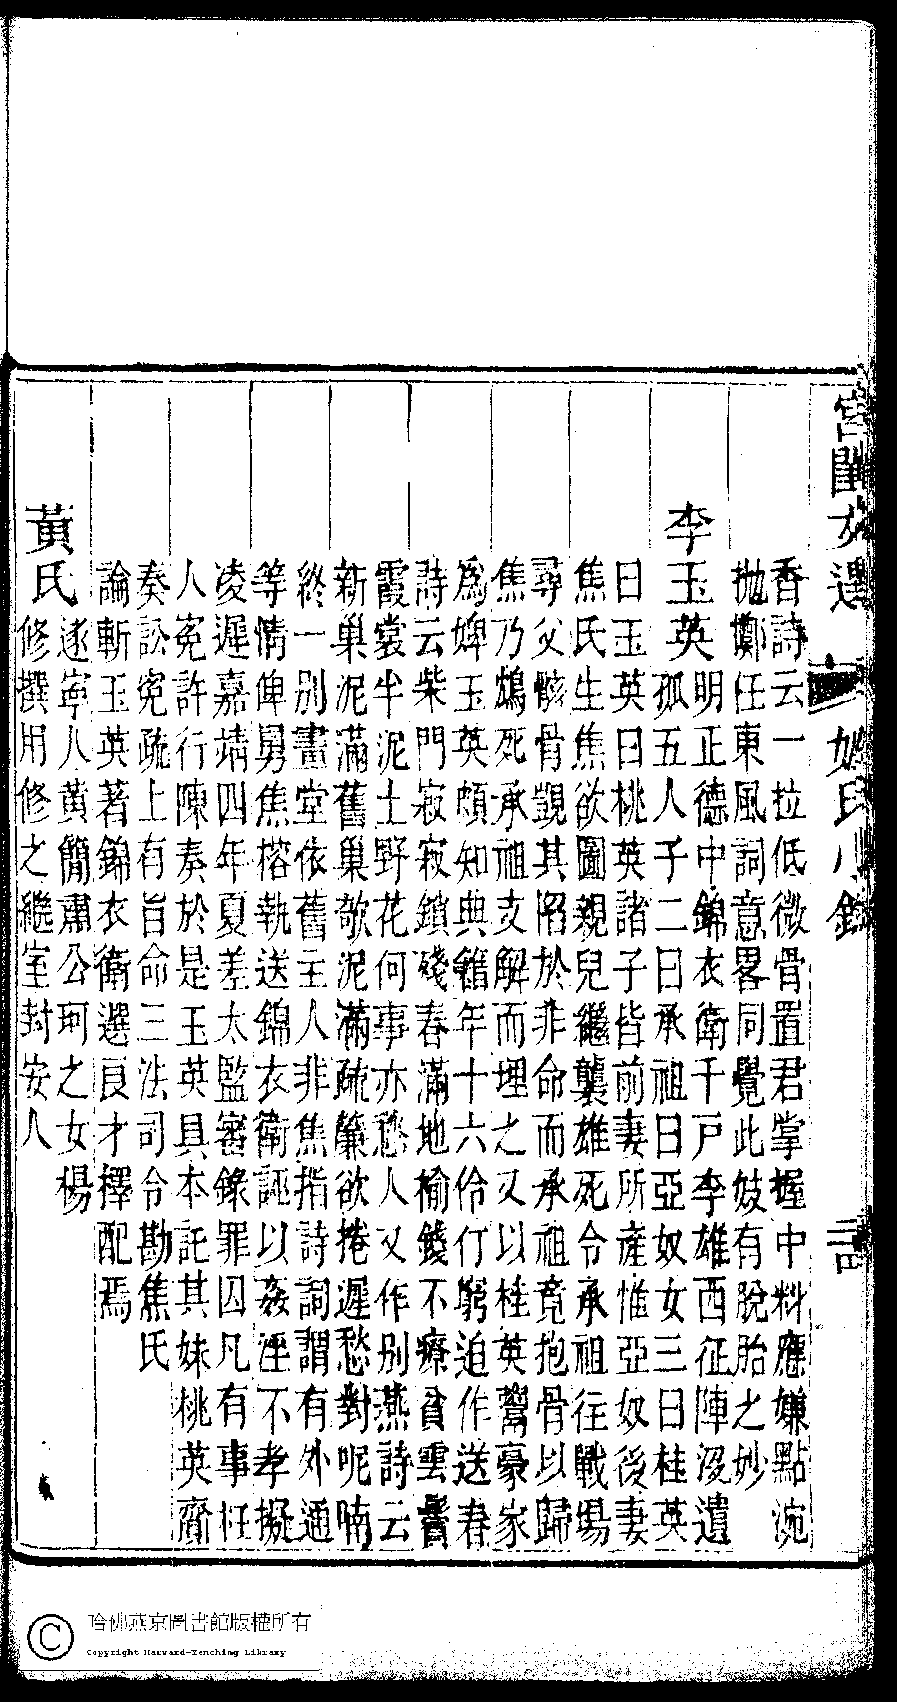 宮閨文選　姓氏小錄　三
香詩云一拉低微骨置君掌握中料應嫌點涴
拋擲任東風詞意畧同覺此妓有脫胎之妙
李玉英明正德中錦衣衛千戸李雄西征陣沒遺
孤五人子二曰承祖曰亞奴女三曰桂英
曰玉英曰桃英諸子皆前妻所產惟亞奴後妻
焦氏生焦欲圖親兒繼襲雄死令承祖往戰場
尋父骸骨覬其陷於非命而承祖竟抱骨以歸
焦乃鴆死承祖支解而埋之又以桂英鬻豪家
為婢玉英頗知典籍年十六伶仃窮迫作送春
詩云柴門寂寂鎖殘春滿地榆錢不療貧雲鬢
霞裳半泥土野花何事亦愁人又作别燕詩云
新巢泥滿舊巢欹泥滿疏簾欲捲遲愁對呢喃
終一别畫堂依舊主人非焦指詩詞謂有外通
等情俾舅焦榕執送錦衣衛誣以姦淫不孝擬
凌遲嘉靖四年夏差太監審錄罪囚凡有事枉
人冤許行陳奏於是玉英具本託其妹桃英齎
奏訟冤疏上有旨命三法司令勘焦氏
論斬玉英著錦衣衛選良才擇配焉
黃氏遂寧人黃簡肅公珂之女楊
修撰用修之繼室封安人
哈佛燕京圖書館版權所有
Copyright Harvard-Yenching Library